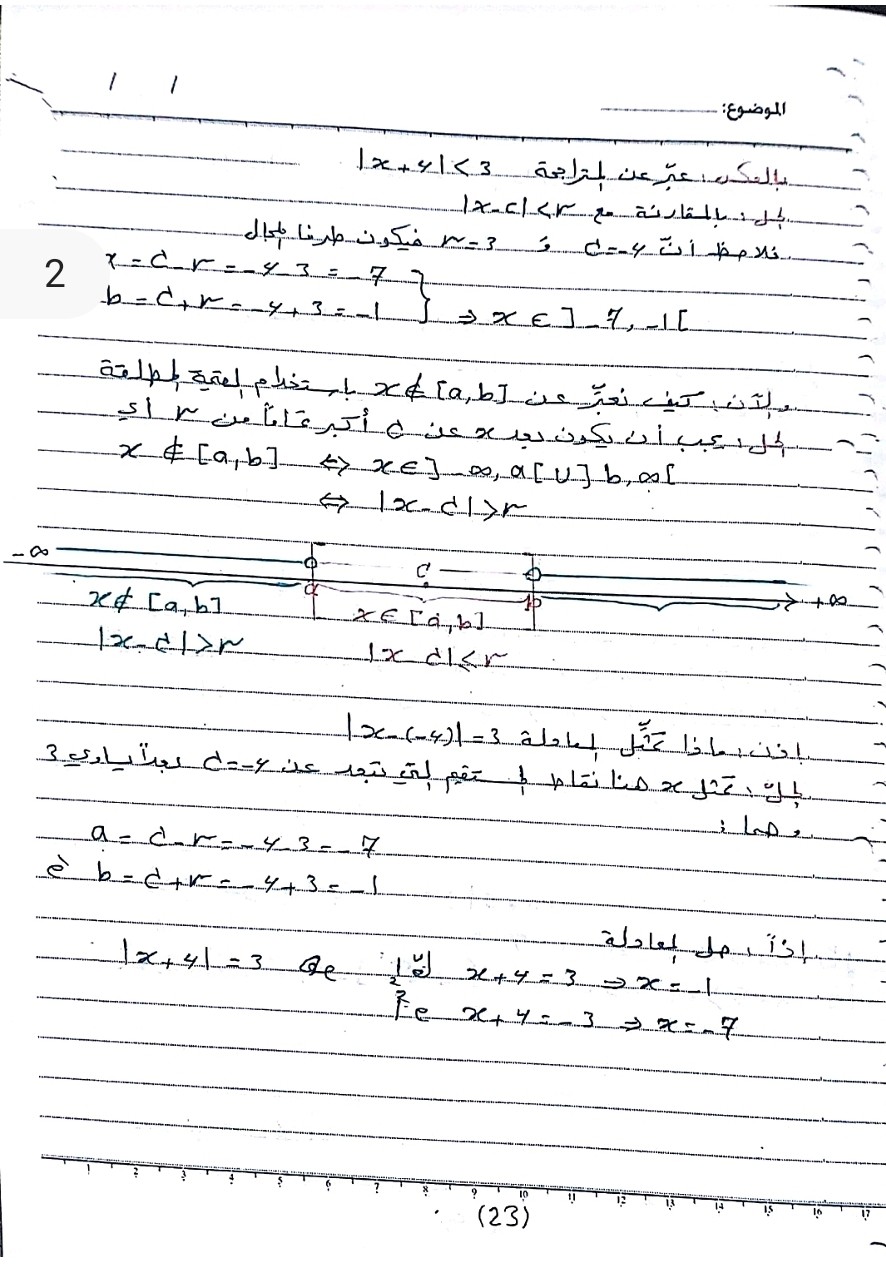 الموضوع:
بالعكس، عبّر عن المتراجحة |x+4|<3
الحل: بالمقارنة مع |x-c|<r
نلاحظ أنّ c=-4 و r=3 فيكون طرفا المجال
x=c-r=-4-3=-7
b=c+r=-4+3=-1 } ⇒ x∈]-7,-1[
2
والآن، كيف نعبّر عن x∉[a,b] باستخدام القيمة المطلقة
الحل: يجب أن يكون بعد x عن c أكبر تماماً من r أي
x∉[a,b] ⇔ x∈]-∞,a[∪]b,∞[
⇔ |x-c|>r
-∞ a c b +∞
x∉[a,b] x∈[a,b]
|x-c|>r |x-c|<r
إذن، ماذا تمثّل المعادلة |x-(-4)|=3
الحل: تمثل x هنا نقاط المستقيم التي تبعد عن c=-4 بعداً يساوي 3
وهما:
a=c-r=-4-3=-7
و b=c+r=-4+3=-1
إذاً، حل المعادلة
|x+4|=3 هو إمّا x+4=3 ⇒ x=-1
x+4=-3 ⇒ x=-7
1 2 3 4 5 6 7 8 9 10 11 12 13 14 15 16 17
(23)